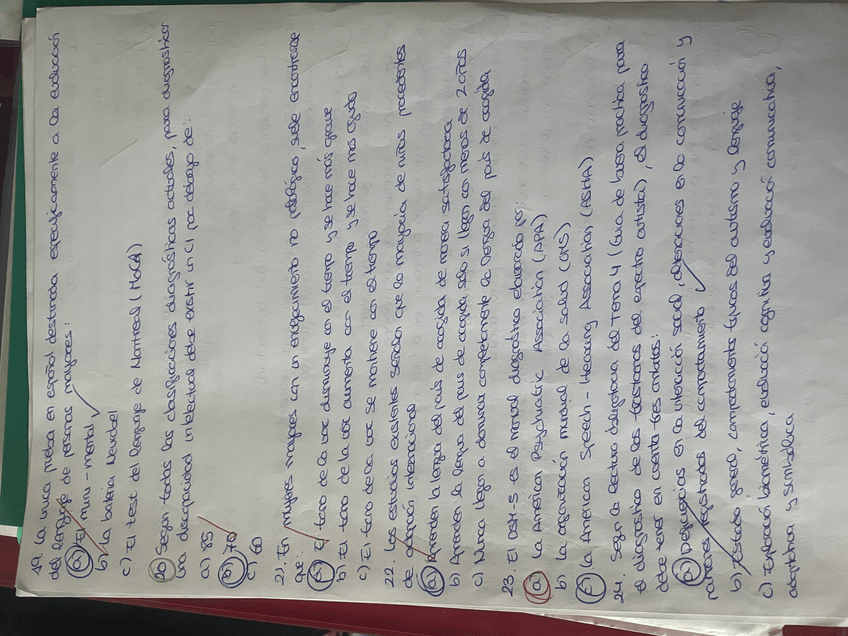 19. La única prueba en español destinada específicamente a la evaluación
del lenguaje de personas mayores:
a) El mini-mental
b) La batería Neurobel
c) El test del lenguaje de Montreal (MoCA)
20 Según todas las clasificaciones diagnósticas actuales, para diagnosticar
una discapacidad intelectual debe existir un CI por debajo de:
a) 85
b) 70
c) 60
21. En mujeres mayores con un envejecimiento no patológico, suele encontrarse
que:
a) El tono de la voz disminuye con el tiempo y se hace más grave
b) El tono de la voz aumenta con el tiempo y se hace más agudo
c) El tono de la voz se mantiene con el tiempo
22. Los estudios existentes señalan que la mayoría de niños procedentes
de adopción internacional
a) Aprenden la lengua del país de acogida de manera satisfactoria
b) Aprenden la lengua del país de acogida solo si llegan con menos de 2 años
c) Nunca llegan a dominar completamente la lengua del país de acogida
23 El DSM-5 es el manual diagnóstico elaborado por:
a) La American Psychiatric Association (APA)
b) La organización mundial de la salud (OMS)
c) La American Speech-Hearing Association (ASHA)
24. Según la lectura obligatoria del Tema 4 (Guía de buena práctica para
el diagnóstico de los trastornos del espectro autista), el diagnóstico
debe tener en cuenta tres ámbitos:
a) Deficiencias en la interacción social, alteraciones en la comunicación y
patrones restringidos del comportamiento
b) Estado general, comportamientos típicos del autismo y lenguaje
c) Exploración biomédica, evaluación cognitiva y evaluación comunicativa,
lingüística y simbólica